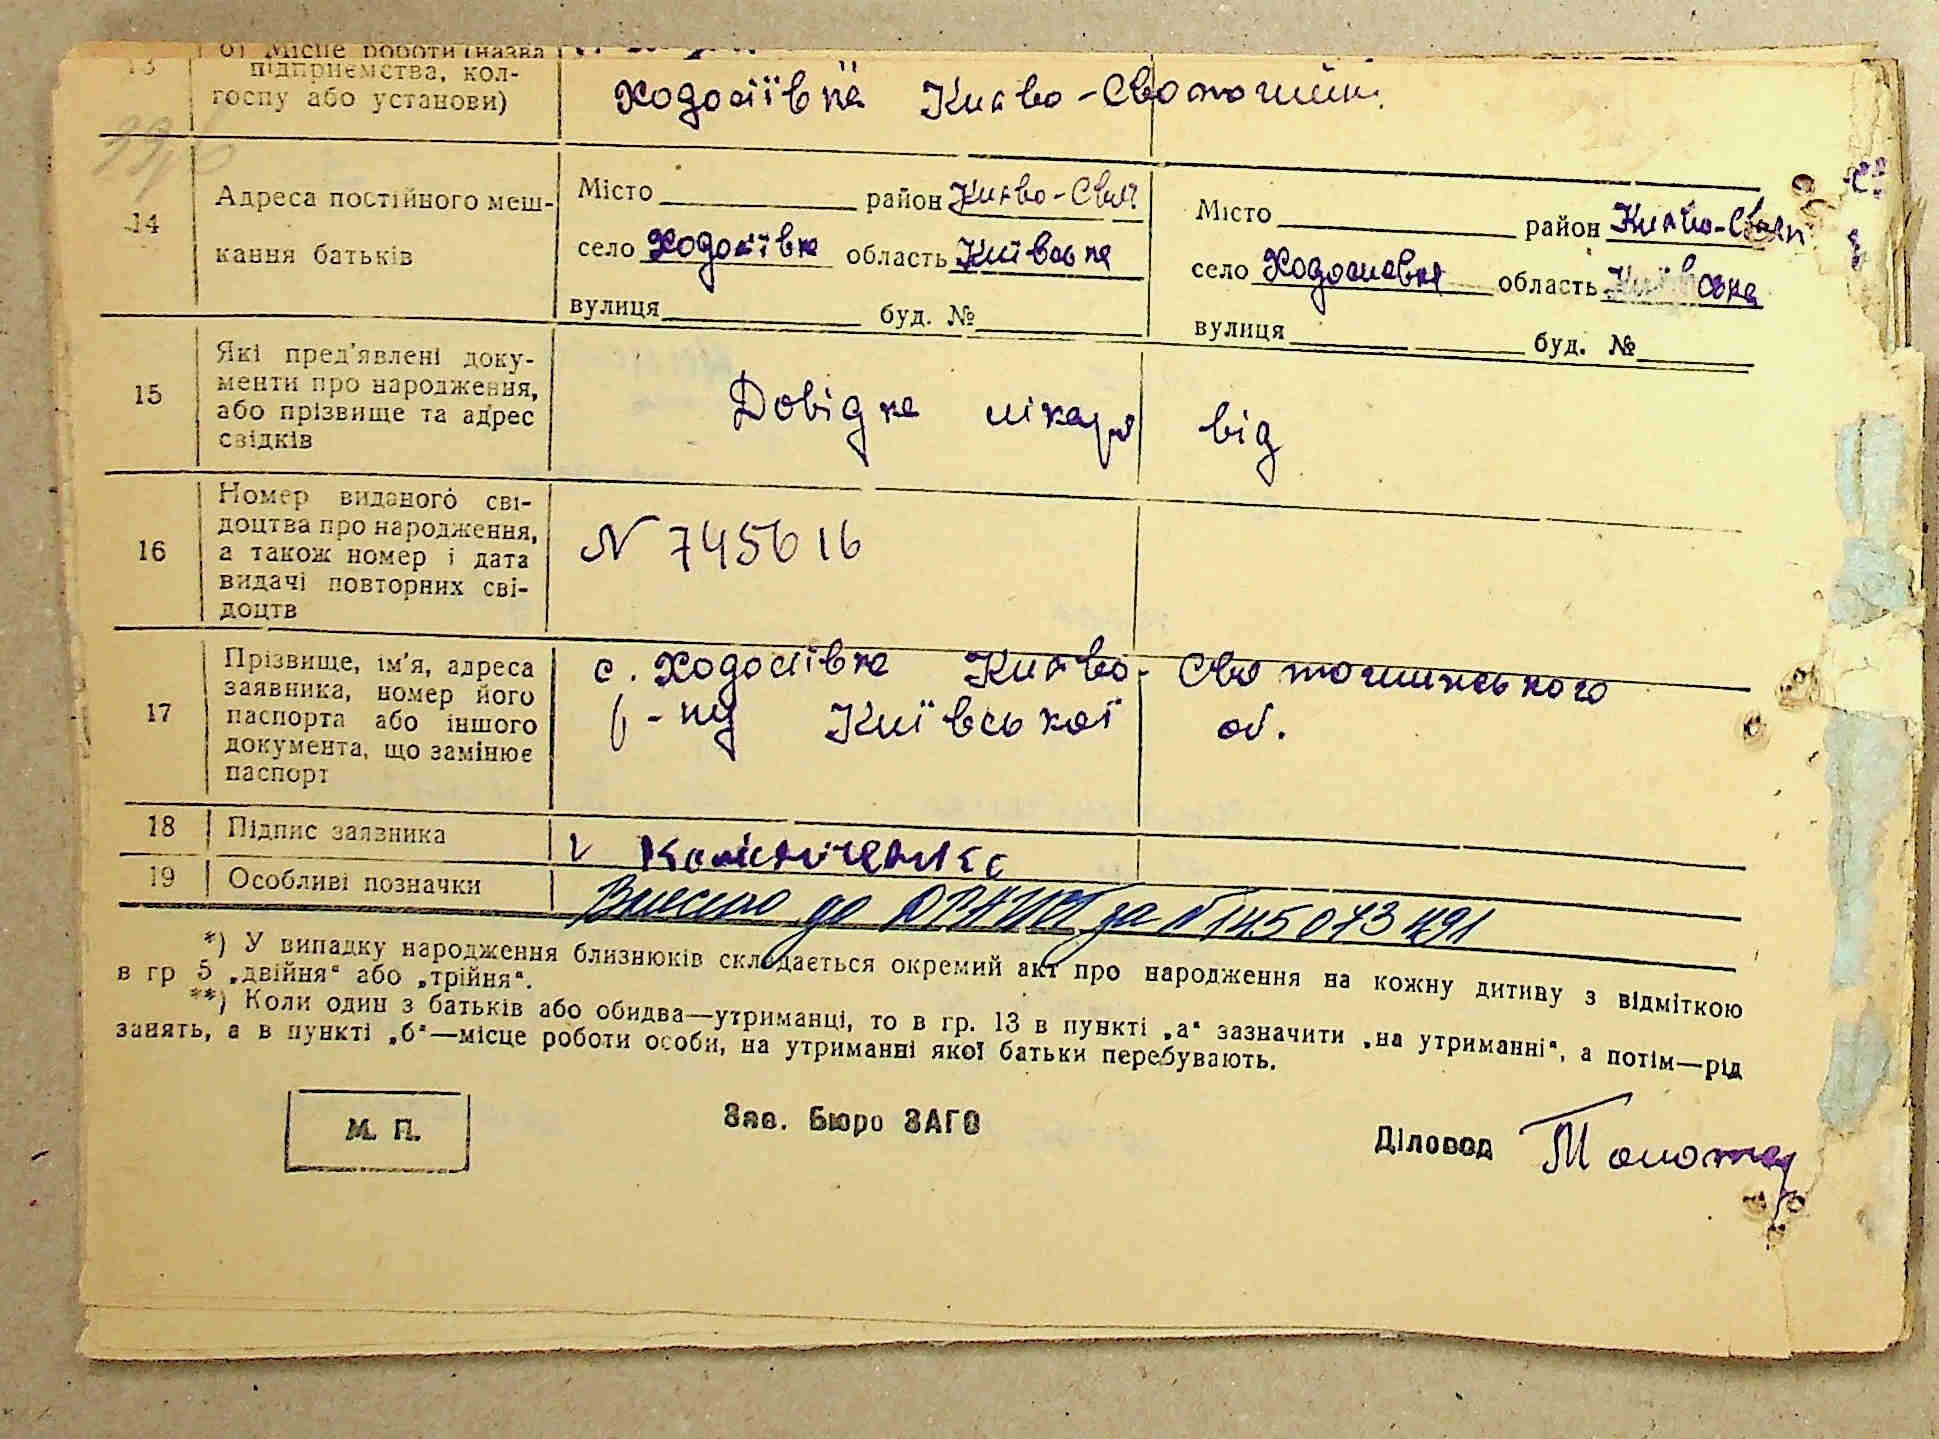 13 б) Місце роботи (назва
підприємства, кол-
госпу або установи)
Ходосіївка Києво-Святошин.
14
Адреса постійного меш-
кання батьків
Місто район Києво-Свят
село Ходосіївка область Київська
вулиця буд. №
Місто район Києво-Святи
село Ходосиевка область Київська
вулиця буд. №
15
Які пред'явлені доку-
менти про народження,
або прізвище та адрес
свідків
Довідка лікаря від
16
Номер виданого сві-
доцтва про народження,
а також номер і дата
видачі повторних сві-
доцтв
N 745616
17
Прізвище, ім'я, адреса
заявника, номер його
паспорта або іншого
документа, що замінює
паспорт
с. Ходосіївка Києво-Святошинського
р-ну Київської об.
18 Підпис заявника
19 Особливі позначки
Внесено до ДРАЦСГ за №145073491
*) У випадку народження близнюків складається окремий акт про народження на кожну дитину з відміткою
в гр 5 „двійня“ або „трійня“.
**) Коли один з батьків або обидва—утриманці, то в гр. 13 в пункті „а“ зазначити „на утриманні“, а потім—рід
занять, а в пункті „б“—місце роботи особи, на утриманні якої батьки перебувають.
М. П.
Зав. Бюро ЗАГС
Діловод